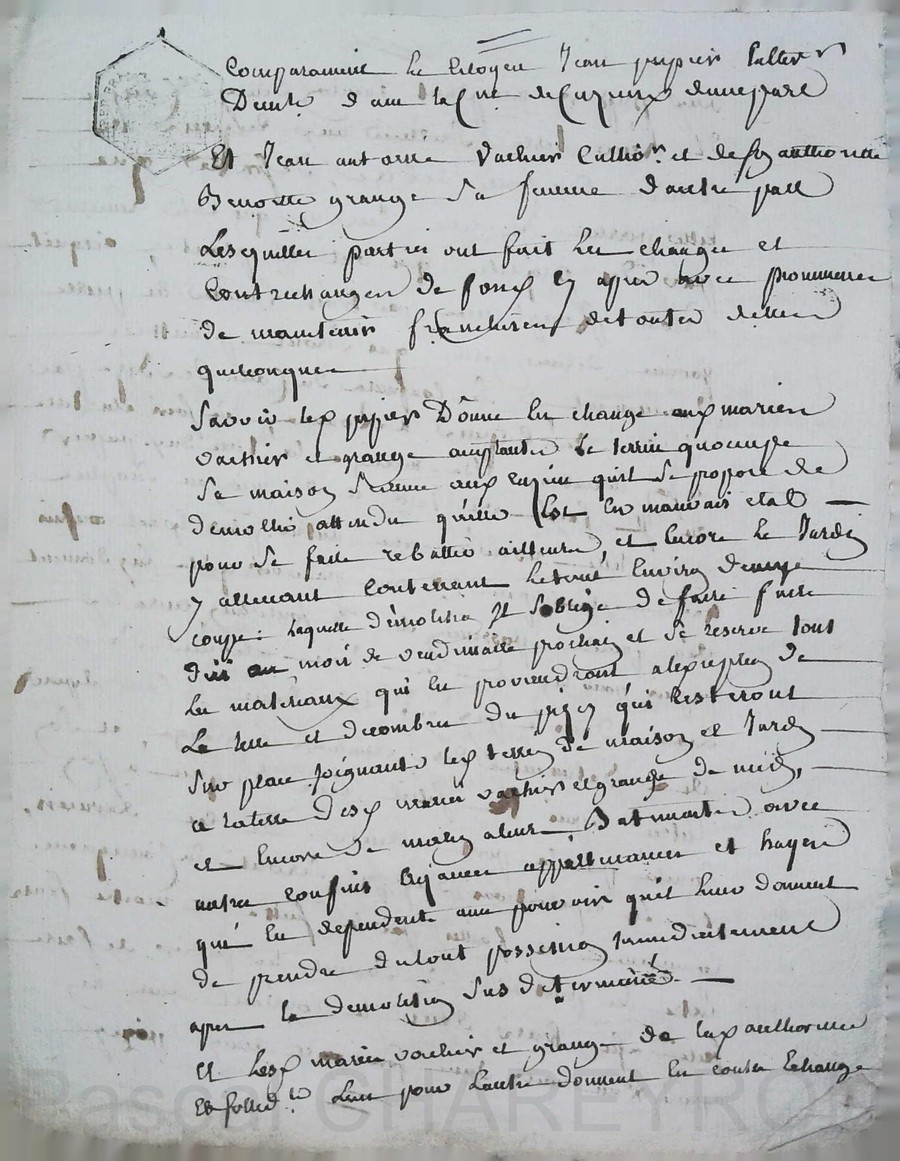 Comparaissent le Citoyen Jean
Demt. d'une part
Et Jean antoine vachier Cultior. et de son authorité
Benoitte grange sa femme d'autre part
Lesquelles parties ont fait les change et
Contrechangen de fons cy après avec promesse
de maintenir franchises de toutes dettes
quelconques
Savoir le donne en change aux mariés
vachier et grange acceptants le terrein quoccupe
sa maison qu'il se propose de
demollir attendu qu'elle Est en mauvais etat
pour se faire rebattir ailleurs, et encore le Jardin
y attenant Contenant le tout Environ demye
coupe: laquelle démolition Il s'oblige de faire faire
d'ici au mois de vendimiaire prochain et se reserve tous
les matériaux qui en proviendront a l'exception de
la terre et décombres du pizey qui resteront
sur place joignants les terres de maison et Jardin
a la terre desd. mariés vachier et grange de midy,
et Encore de matin a leurs Batiments avec
autres confins aisances appartenances et
qui en dependent avec pouvoir qu'il leur donnent
de prendre du tout possession immediatement
apres la demolition sus determinée.
Et lesd. mariés vachier et grange de lad. authorité
Et sollid.t L'un pour l'autre donnent En contre Echange
CHAREYRON